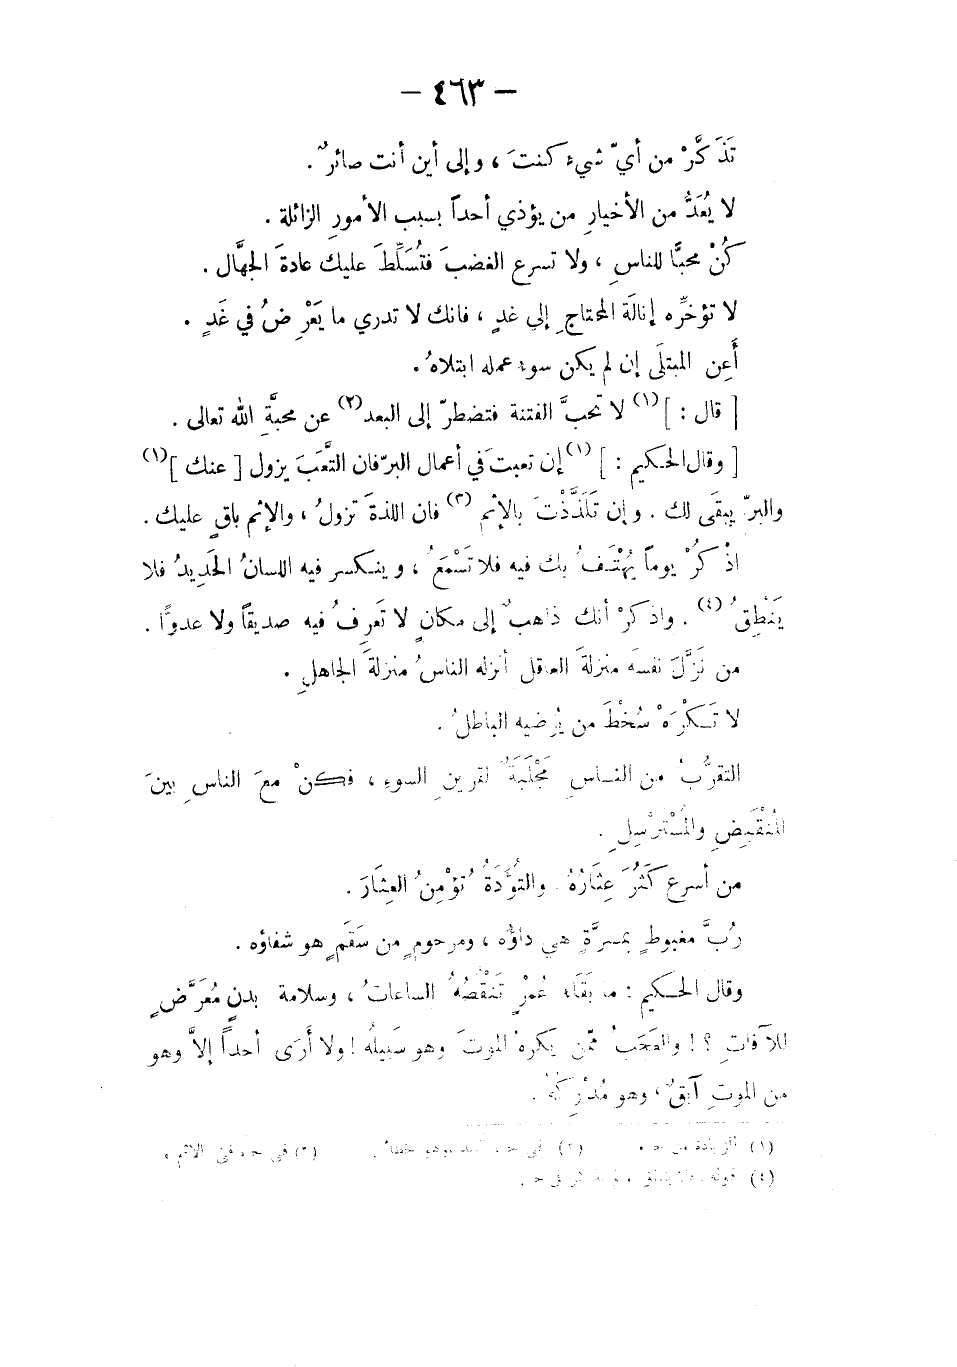 – ٤٦٣ –
تَذَكَّرْ من أيّ شيءٍ كنتَ ، وإلى أين أنت صائرٌ .
لا يُعَدُّ من الأخيارِ من يؤذي أحداً بسبب الأمورِ الزائلة .
كُنْ محبًّا للناسِ ، ولا تسرع الغضبَ فتُسَلِّطَ عليك عادةَ الجهَّال .
لا تؤخِّره إنالَة المحتاجِ إلي غدٍ ، فانك لا تدري ما يَعْرِضُ في غَدٍ .
أَعِن المبتلَى إن لم يكن سوء عمله ابتلاهُ .
[ قال : ] (١) لا تحبَّ الفتنة فتضطرّ إلى البعد (٢) عن محبَّةِ الله تعالى .
[ وقال الحكيم : ] (١) إن تعبتَ في أعمال البرّ فان التَّعَبَ يزول [ عنك ] (١)
والبرّ يبقَى لك . وإن تَلَذَّذْتَ بالإثم (٣) فان اللذةَ تزولُ ، والإثم باقٍ عليك .
اذْكُرْ يوماً يُهْتَفُ بك فيه فلا تَسْمَعُ ، وينكسر فيه اللسانُ الحَديدُ فلا
يَنْطِقُ (٤) . واذكرْ أنك ذاهبٌ إلى مكانٍ لا تَعرِفُ فيه صديقاً ولا عدوًّا .
من نَزَّلَ نفسَه منزلةَ العاقل أنزله الناسُ منزلةَ الجاهلِ .
لا تَكْرَهْ سُخْطَ من يُرضيه الباطلُ .
التقرُّبُ من الناسِ مَجْلَبَةٌ لقرينِ السوءِ ، فكنْ معَ الناسِ بينَ
المُنْقَبِضِ والمُسْتَرْسِلِ .
من أسرع كَثُرَ عِثَارُهُ . والتُؤَدَةُ تُؤْمِنُ العِثَارَ .
رُبَّ مغبوطٍ بمسرَّةٍ هي داؤه ، ومرحومٍ من سَقَمٍ هو شفاؤه .
وقال الحكيم : ما بَقَاء عُمرٍ تَنْقُصُهُ الساعاتُ ، وسلامة بدنٍ مُعَرَّضٍ
للآفاتِ ؟ ! والعَجَبُ ممّن يَكره الموتَ وهو سَبيلُه ! ولا أَرَى أحداً إلاَّ وهو
من الموتِ آبقٌ ، وهو مُدْرِكُهُ .
(١) الزيادة من ح . (٢) في ح وهو خطأ . (٣) في ح في الاثم .
(٤) قوله في ح .